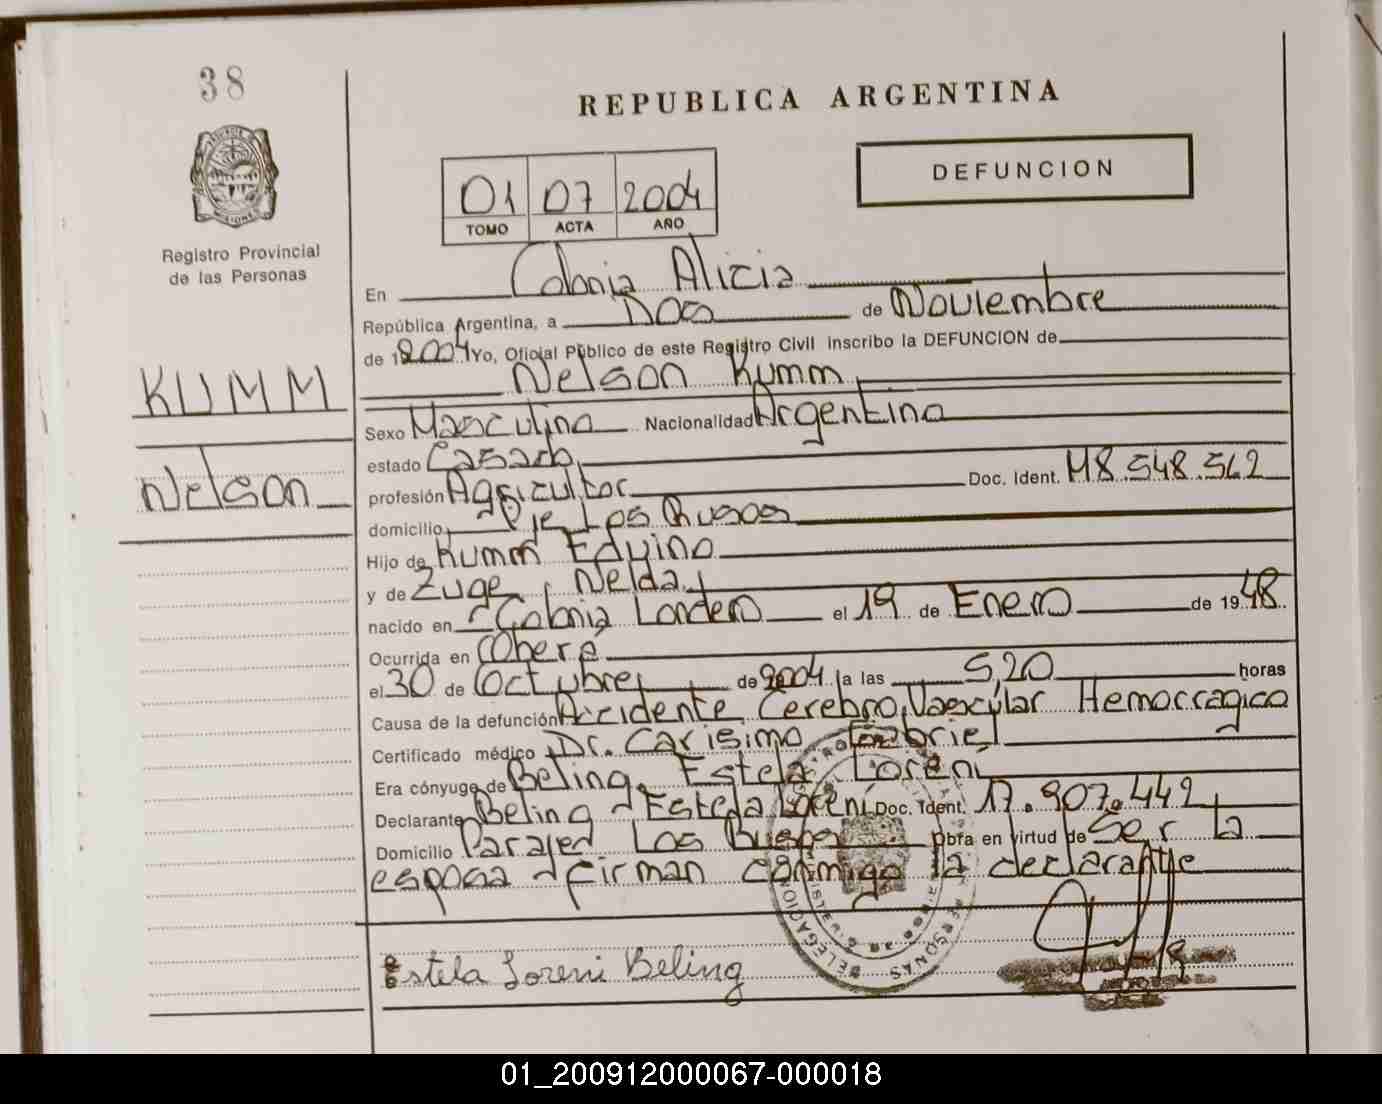 38
REPUBLICA ARGENTINA
DEFUNCION
01 07 2004
TOMO ACTA AÑO
Registro Provincial
de las Personas
KUMM
Nelson
En Colonia Alicia
República Argentina, a Dos de Noviembre
de 2004 Yo, Oficial Público de este Registro Civil inscribo la DEFUNCION de
Nelson Kumm
Sexo Masculino Nacionalidad Argentino
estado Casado
profesión Agricultor Doc. Ident. M8.548.562
domicilio Pje Los Rusos
Hijo de Kumm Eduino
y de Zuge, Nelda
nacido en Colonia el 19 de Enero de 1948
Ocurrida en Oberá
el 30 de Octubre de 2004 a las 5,20 horas
Causa de la defunción Accidente Cerebro Vascular Hemorragico
Certificado médico Dr. Carisimo Gabriel
Era cónyuge de Beling, Estela Loreni
Declarante Beling Estela Loreni Doc. Ident. 17.907.442
Domicilio Paraje Los Rusos Obra en virtud de Ser la
esposa firman conmigo la declarante
Estela Loreni Beling
01_200912000067-000018